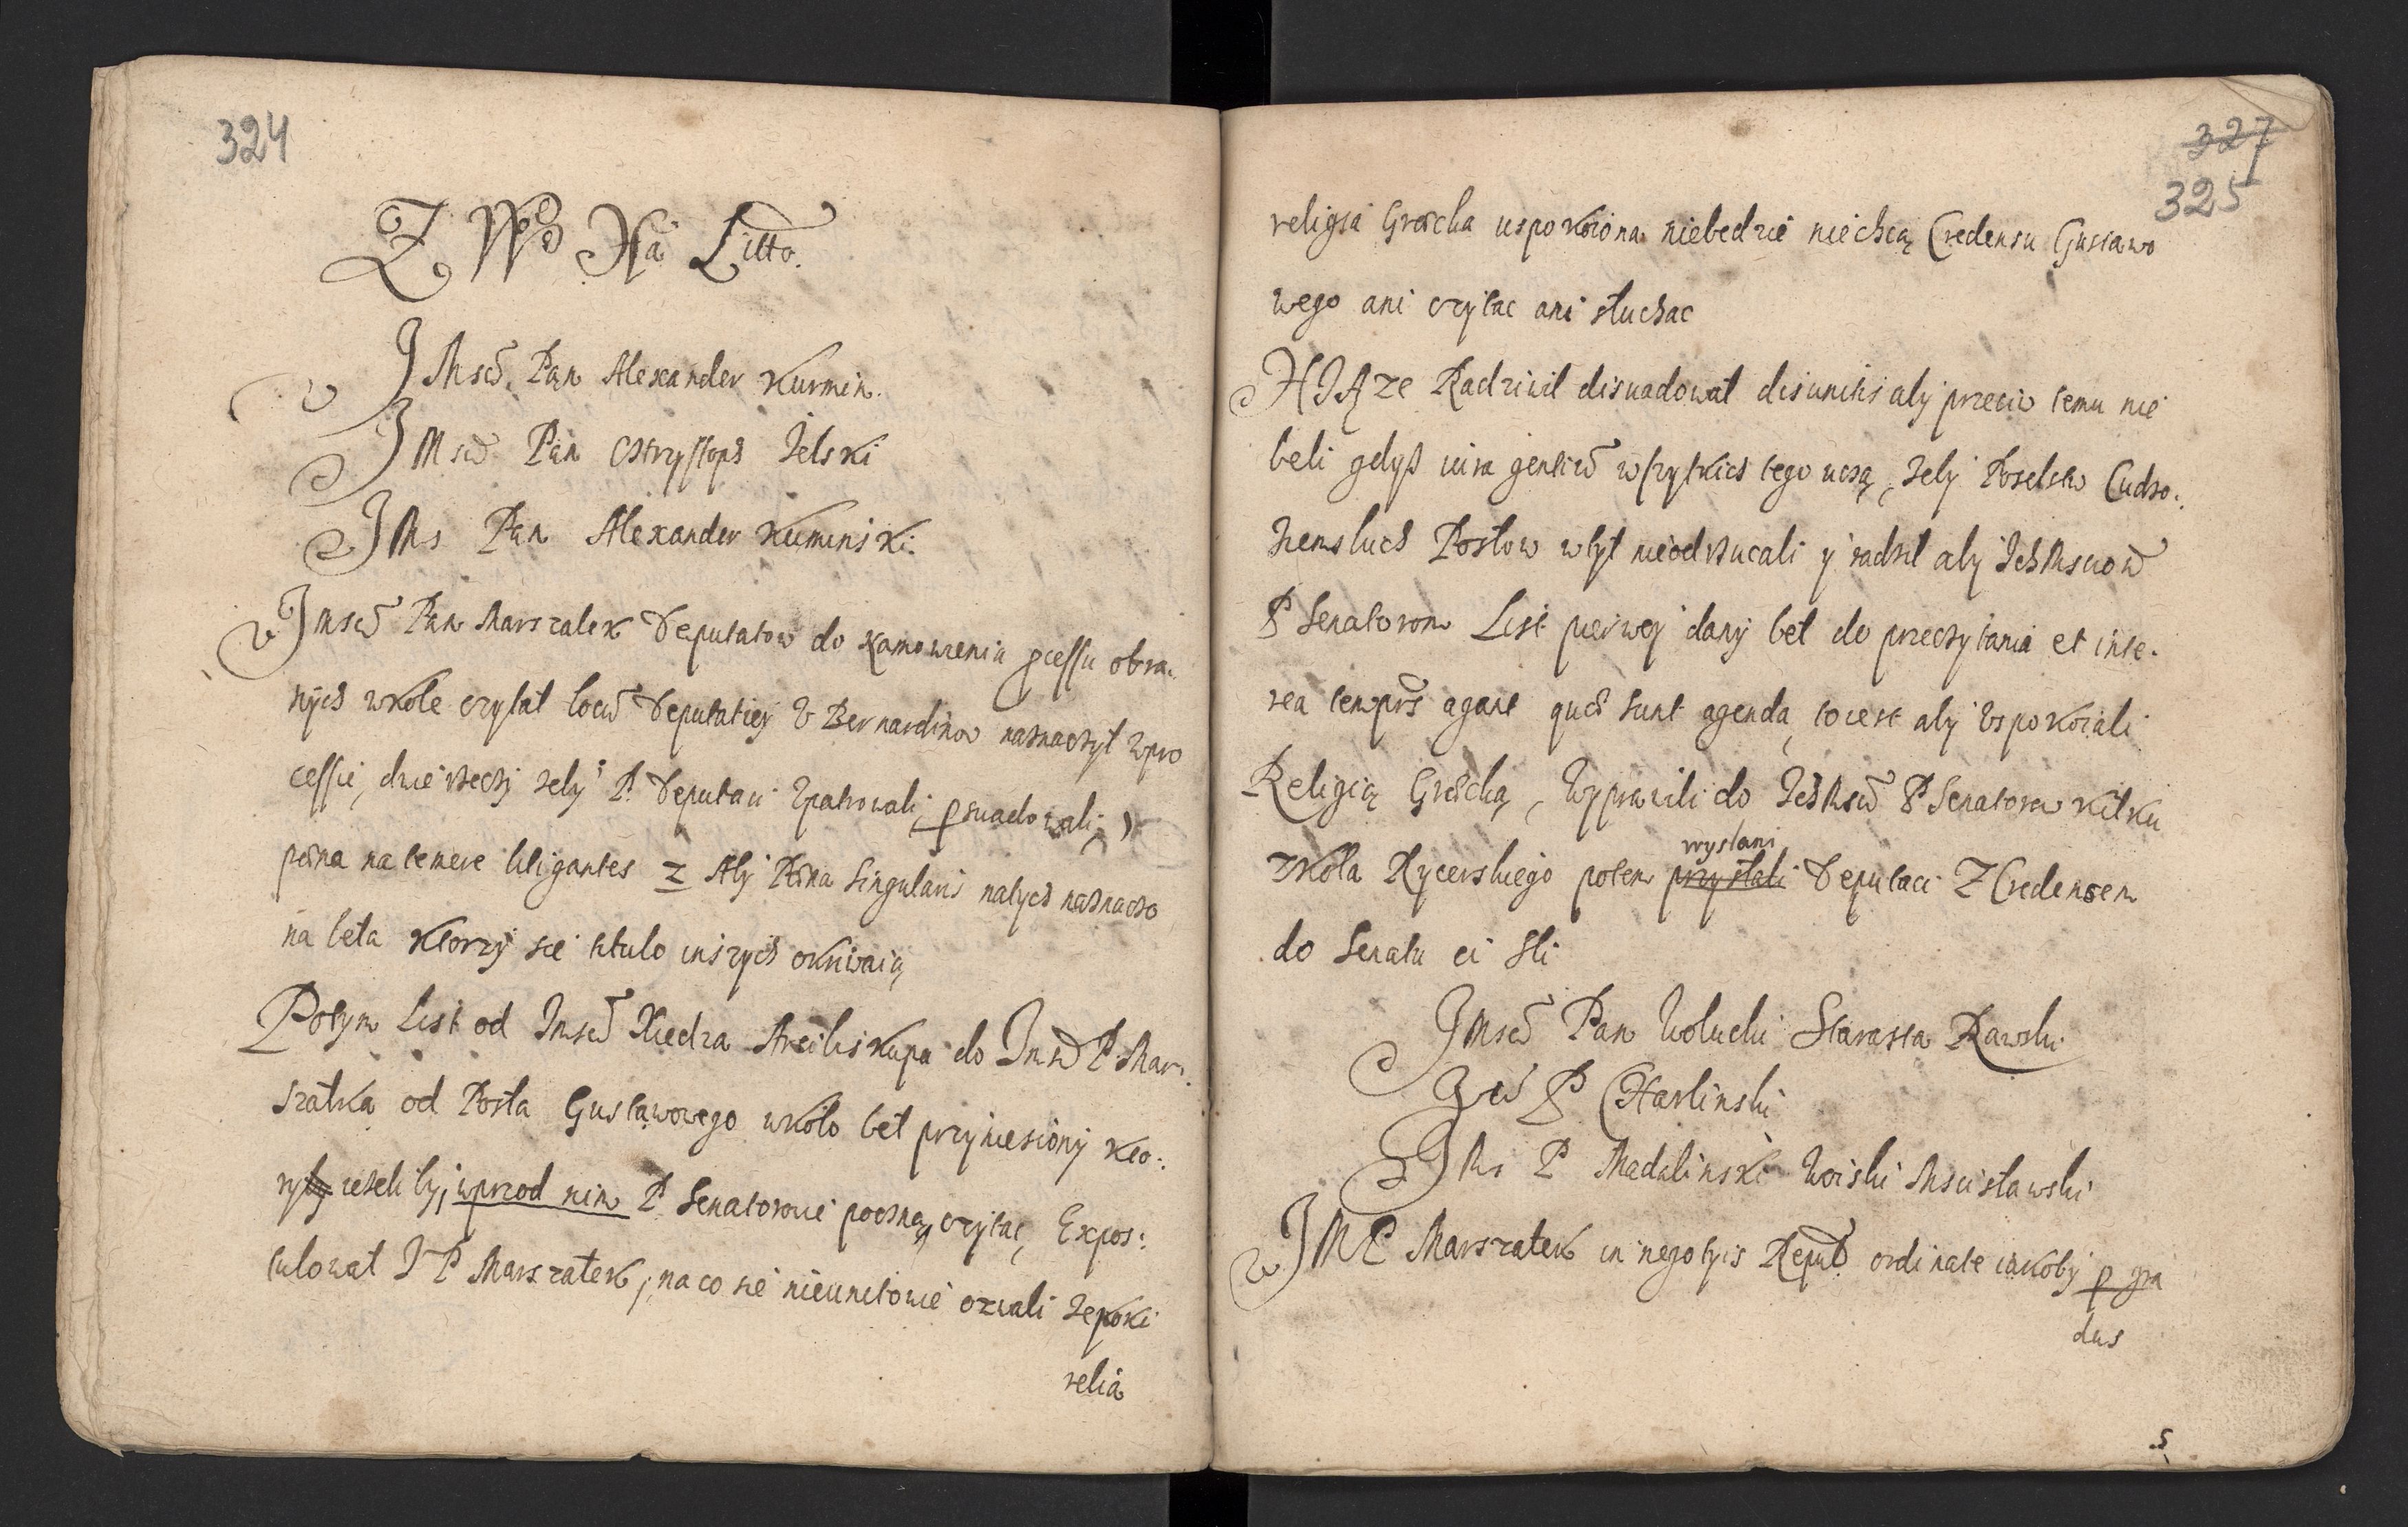 324
Z Wo Xa Litto.
J Mscz. Pan Alexander Kurmin.
J Mscz Pan Chrystoph Zelski
J Ms Pan Alexander Kuminski
J mscz Pan Marszalek Deputatow do namowienia pcessu obra-
nijch w kole czytal locũ Deputatiej U Bernardinow naznaczyl w pro
cessie, dwie rzeczy zeby P. Deputaci Upatrowali, psuadowali,
pœna na temere litigantes z Aby Pœna singularis na tych naznaczo
na beła ktorzy sie titulo inszych okriwaią
Potym List od Jmscz Xiedza Arcibiskupa do Jmsz P Mar-
szałka od Posła Gustawowego w koło beł przyniesiony kto-
ry jezeliby, wprzod nim P Senatorowie poczną czytac, Expos:
tulowal J P Marszałek, na co sie nieunitowie ozwali ze poki
relia
327
325
religia Græcka uspokoiona niebedzie niechcą Credensu Gustawo
wego ani czytac ani słuchac
XIĄze Radziwil disuadowal disunitis aby przeciw temu nie
beli gdyß iura gentiũ wszytkich tego uczą, zeby Poselstw Cudzo:
ziemskich Posłow w tył nieodrzucali y radził aby Jch Msciom
P Senatorom List pierwej dany beł do przeczytania et inte-
rea temporis agant quæ sunt agenda, to iest aby Uspokoiali
Religią Græcką, Wyprawili do Jch Mscz P Senatorow kilku
z Koła Rycerskiego potem przysłali wysłani Deputaci Z Credensem
do Senatu ci ßli
J Mscz Pan Wolucki Starosta Rawski
J es P Charlinski
J Ms P Madalinski Woiski Mscisławski
J M P Marszałek in negotyis Reipub ordinate iakoby p gra
dus
5